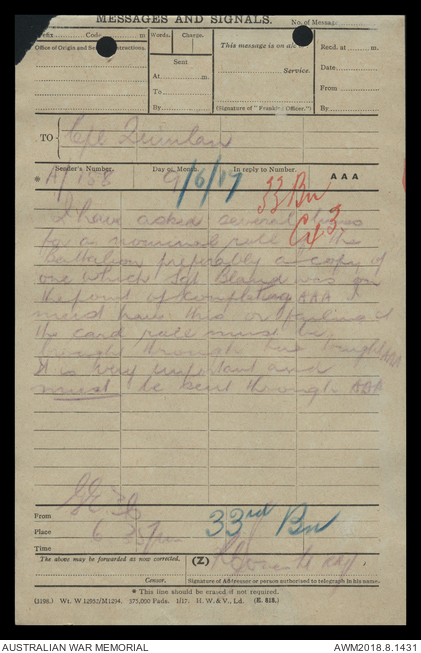 MESSAGES AND SIGNALS.
No. of Message
Prefix Code m
Words. Charge.
This message is on a/c of
Recd. at m.
Office of Origin and Service Instructions.
Sent
Date
At m.
Service.
From
To
By
(Signature of "Franking Officer.")
By
TO Capt Quinlan
Sender's Number. Day of Month. In reply to Number. AAA
* A/158 9/6/17
33 Bn
I have asked several times
for a nominal roll of the
Battalion preferably a copy of
one which Sgt Bland was on
the point of completing AAA I
must have this or failing it
the card roll must be
brought through tonight AAA
It is very important and
must be sent through AAA
From
Place
6 35 pm
33rd Bn
Time
The above may be forwarded as now corrected. (Z)
Censor. Signature of Addressor or person authorised to telegraph in his name.
* This line should be erased if not required.
(3198.) Wt. W 12952/M1294. 375,000 Pads. 1/17. H. W. & V., Ld. (E. 818.)
AUSTRALIAN WAR MEMORIAL AWM2018.8.1431